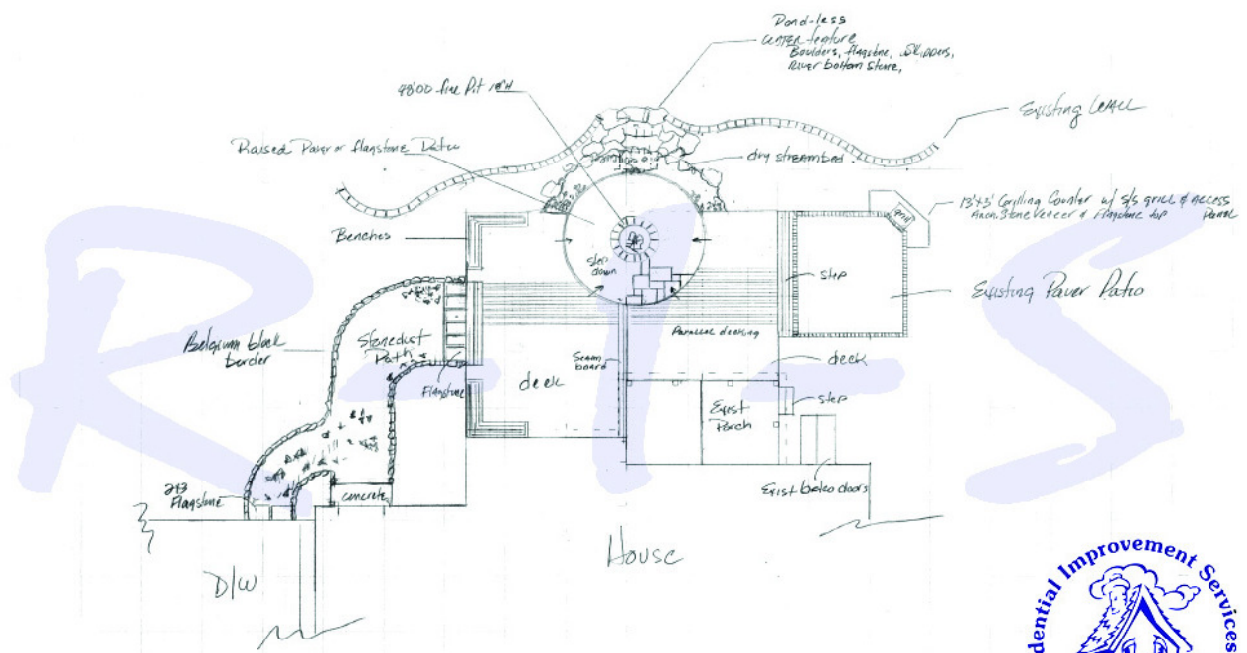 Pond-less
feature
Boulders, flagstone,
River bottom stone,
fire Pit
Existing WALL
Raised Paver or flagstone Patio
dry streambed
Grilling Counter w/ S/S grill & access
Stone Veneer & Flagstone top Panel
grill
Benches
step
down
step
Existing Paver Patio
Belgium block
border
Stonedust
Path
Parallel decking
Seam
board
deck
deck
Flagstone
step
Exist
Porch
2x3
Flagstone
concrete
Exist bilco doors
House
D/W
R-I-S
dential Improvement Services